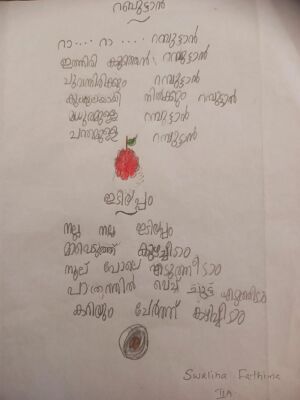 റംബുട്ടാൻ
റാ... റാ .... റമ്പുട്ടാൻ
ഇത്തിരി കുഞ്ഞൻ റമ്പുട്ടാൻ
ചുവന്നിരിക്കും റമ്പുട്ടാൻ
കുലകുലയായി നിൽക്കും റമ്പുട്ടാൻ
മധുരമുള്ള റമ്പുട്ടാൻ
ചന്തമുള്ള റമ്പുട്ടാൻ
ഇടിയപ്പം
നല്ല നല്ല ഇടിയപ്പം
മാവെടുത്ത് കുഴച്ചിടാം
നൂല് പോലെ എടുത്തീടാം
പാത്രത്തിൽ വെച്ച് ചുട്ട് എടുത്തിടാം
കറിയും ചേർന്ന് കഴിച്ചിടാം
Swaliha Fathima
II A